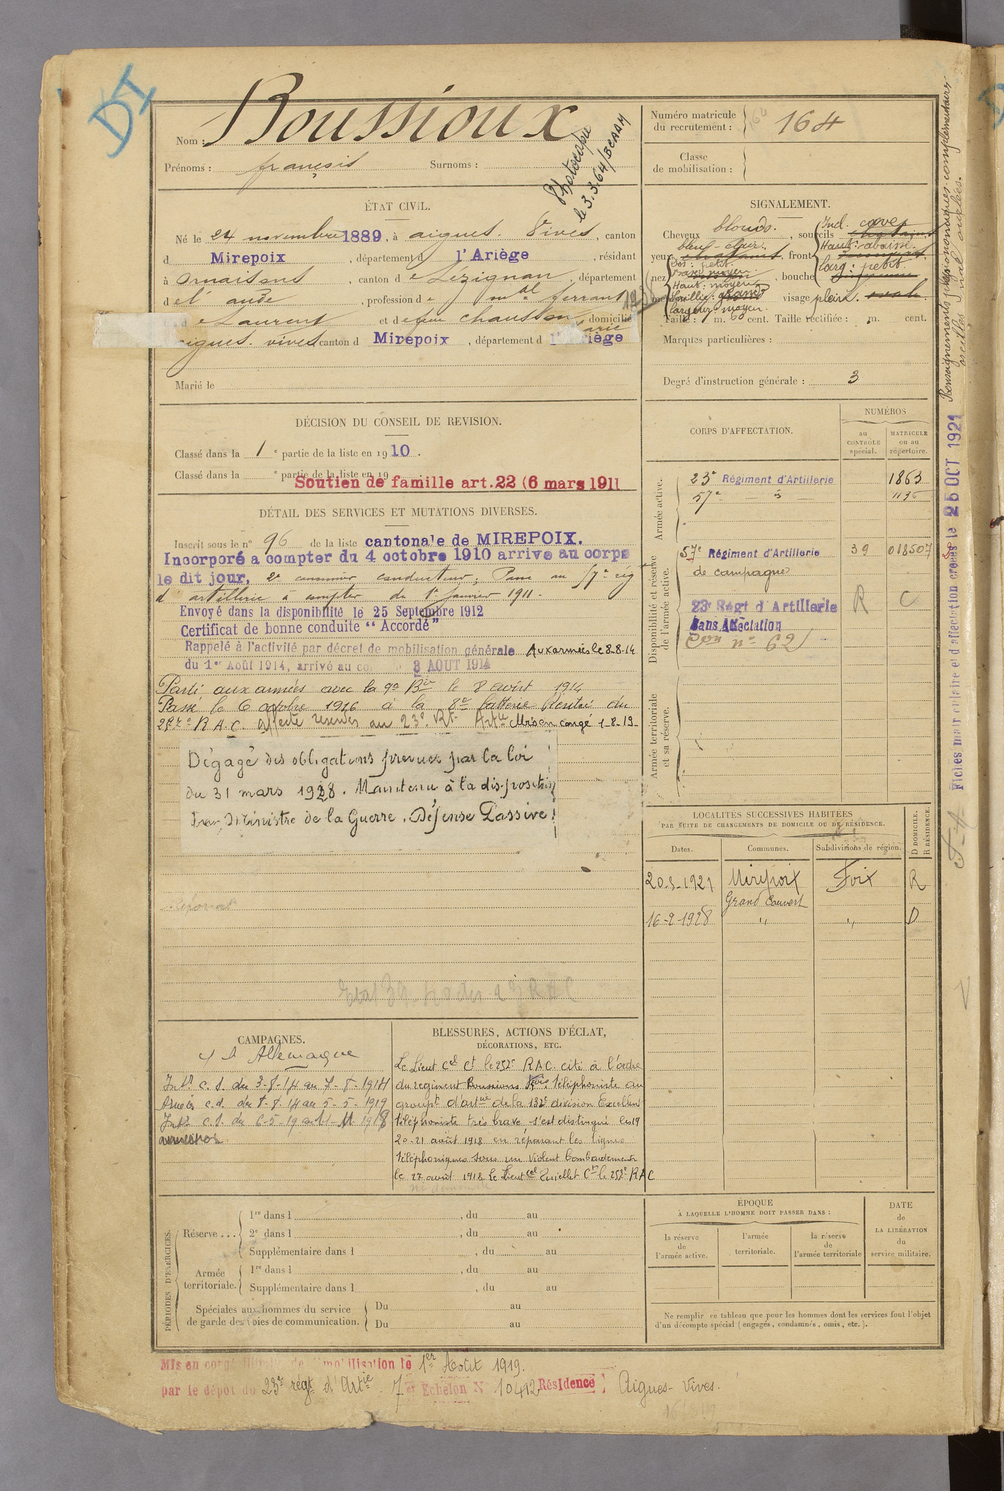 DI
Nom : Boussioux
Prénoms : françois Surnoms :
Photocopie
le 3.3.64/BCAAM
Numéro matricule
du recrutement : 164
Classe
de mobilisation :
ÉTAT CIVIL.
Né le 24 novembre 1889, à aigues. Vives, canton
d Mirepoix, département d l'Ariège, résidant
à Ornaisons, canton d e Lézignan, département
d e l'aude, profession d e md ferrant
d e Laurent et d e feue chausson Marie, domiciliés
aigues. vives canton d Mirepoix, département d l'Ariège
Marié le
SIGNALEMENT.
Cheveux blonds. , sourcils
yeux bleu-clair. , front
Incl. :
Haut : abaissé.
Larg : petit.
nez
Dos : petit.
Base moyen
Haut : moyen
Saillie : grand
Largeur : moyen.
, bouche
visage plein.
Taille : 1 m. 60 cent. Taille rectifiée : m. cent.
Marques particulières :
Degré d'instruction générale : 3
DÉCISION DU CONSEIL DE REVISION.
Classé dans la 1e partie de la liste en 1910.
Classé dans la e partie de la liste en 19
Soutien de famille art.22 (6 mars 1911
DÉTAIL DES SERVICES ET MUTATIONS DIVERSES.
Inscrit sous le n° 96 de la liste cantonale de MIREPOIX.
Incorporé a compter du 4 octobre 1910 arrivé au corps
le dit jour, 2e canonnier conducteur, Passé au 57e rég
d'artillerie à compter du 1er janvier 1911.
Envoyé dans la disponibilité le 25 Septembre 1912
Certificat de bonne conduite "Accordé"
Rappelé à l'activité par décret de mobilisation générale Aux armées le 8-8-14
du 1er Août 1914, arrivé au co 3 AOUT 1914
Parti aux armées avec la 9e Bie le 8 août 1914
Passé le 6 octobre 1916 à la 8e batterie du
252e R.A.C. affecté réserves au 23e Rt. Artie Mis en congé 1-8-19
Dégagé des obligations prévues par la loi
du 31 mars 1928. Maintenu à la disposition
du Ministre de la Guerre. Défense Passive.
CORPS D'AFFECTATION.
NUMÉROS
AU CONTRÔLE spécial.
MATRICULE ou au répertoire.
Armée active.
23e Régiment d'Artillerie 1863
57e " 1196
Disponibilité et réserve de l'armée active.
57e Régiment d'Artillerie 39 018507
de campagne
23e Régt d'Artillerie R C
Sans Affectation
Con n° 62
Armée territoriale et sa réserve.
LOCALITÉS SUCCESSIVES HABITÉES
PAR SUITE DE CHANGEMENTS DE DOMICILE OU DE RÉSIDENCE.
Dates. Communes. Subdivisions de région. D DOMICILE. R RÉSIDENCE.
20-5-1921 Mirepoix Foix R
Grand Couvert
16-2-1928 " " D
CAMPAGNES.
c/ l'Allemagne
Intr c. s. du 3-8-14 au 7-8-1914
Armées c.d. du 8-8-14 au 5-5-1919
BLESSURES, ACTIONS D'ÉCLAT,
DÉCORATIONS, ETC.
Le Lieut Cel Ct le 252e RAC. cite à l'ordre
du régiment Boussioux Fois téléphoniste au
groupt d'artie de la 132e division Excellent
téléphoniste très brave, s'est distingué les 19
20-21 août 1918 en réparant les lignes
téléphoniques sous un violent bombardement
le 27 août 1918 Le Lieut Cel Ct le 252e RAC
PÉRIODES D'EXERCICES.
Réserve ...
1re dans l , du au
2e dans l , du au
Supplémentaire dans l , du au
Armée territoriale.
1re dans l , du au
Supplémentaire dans l , du au
Spéciales aux hommes du service
de garde des voies de communication.
Du au
Du au
ÉPOQUE
À LAQUELLE L'HOMME DOIT PASSER DANS :
la réserve de l'armée active.
l'armée territoriale.
la réserve de l'armée territoriale
DATE
de
LA LIBÉRATION
du
service militaire.
Ne remplir ce tableau que pour les hommes dont les services font l'objet
d'un décompte spécial (engagés, condamnés, omis, etc.).
Mis en congé illimité de démobilisation le 1er Août 1919.
par le dépôt du 23e régt d'Artie. 7e Echelon N° 10412 Résidence : Aigues-Vives.
Renseignements physionomiques complémentaires
Fiches matriculaire et d'affectation créées le 25 OCT 1921